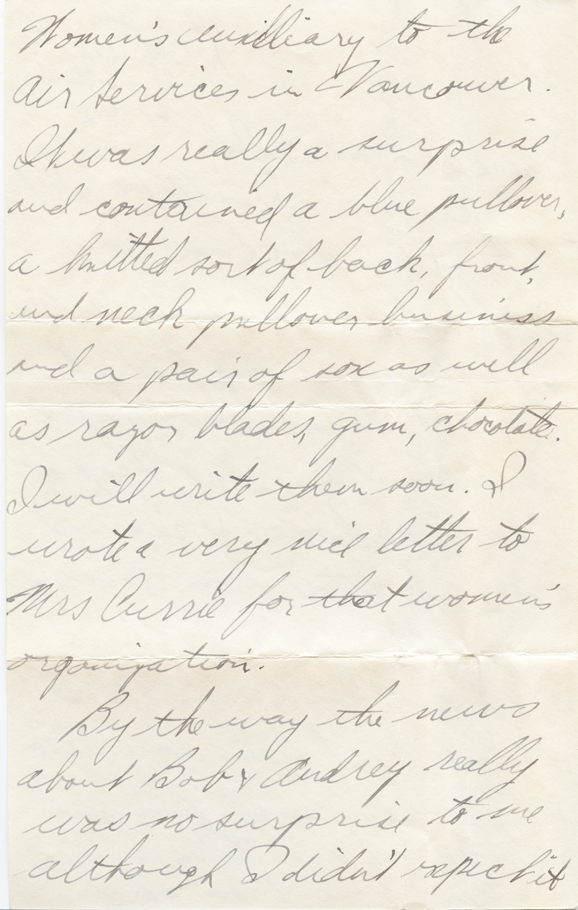 Women's Auxiliary to the
Air Services in Vancouver.
It was really a surprise
and contained a blue pullover,
a knitted sort of back, front,
and neck pullover business
and a pair of sox as well
as razor blades, gum, chocolate.
I will write them soon. I
wrote a very nice letter to
Mrs Currie for that women's
organization.
By the way the news
about Bob & Audrey really
was no surprise to me
although I didn't expect it